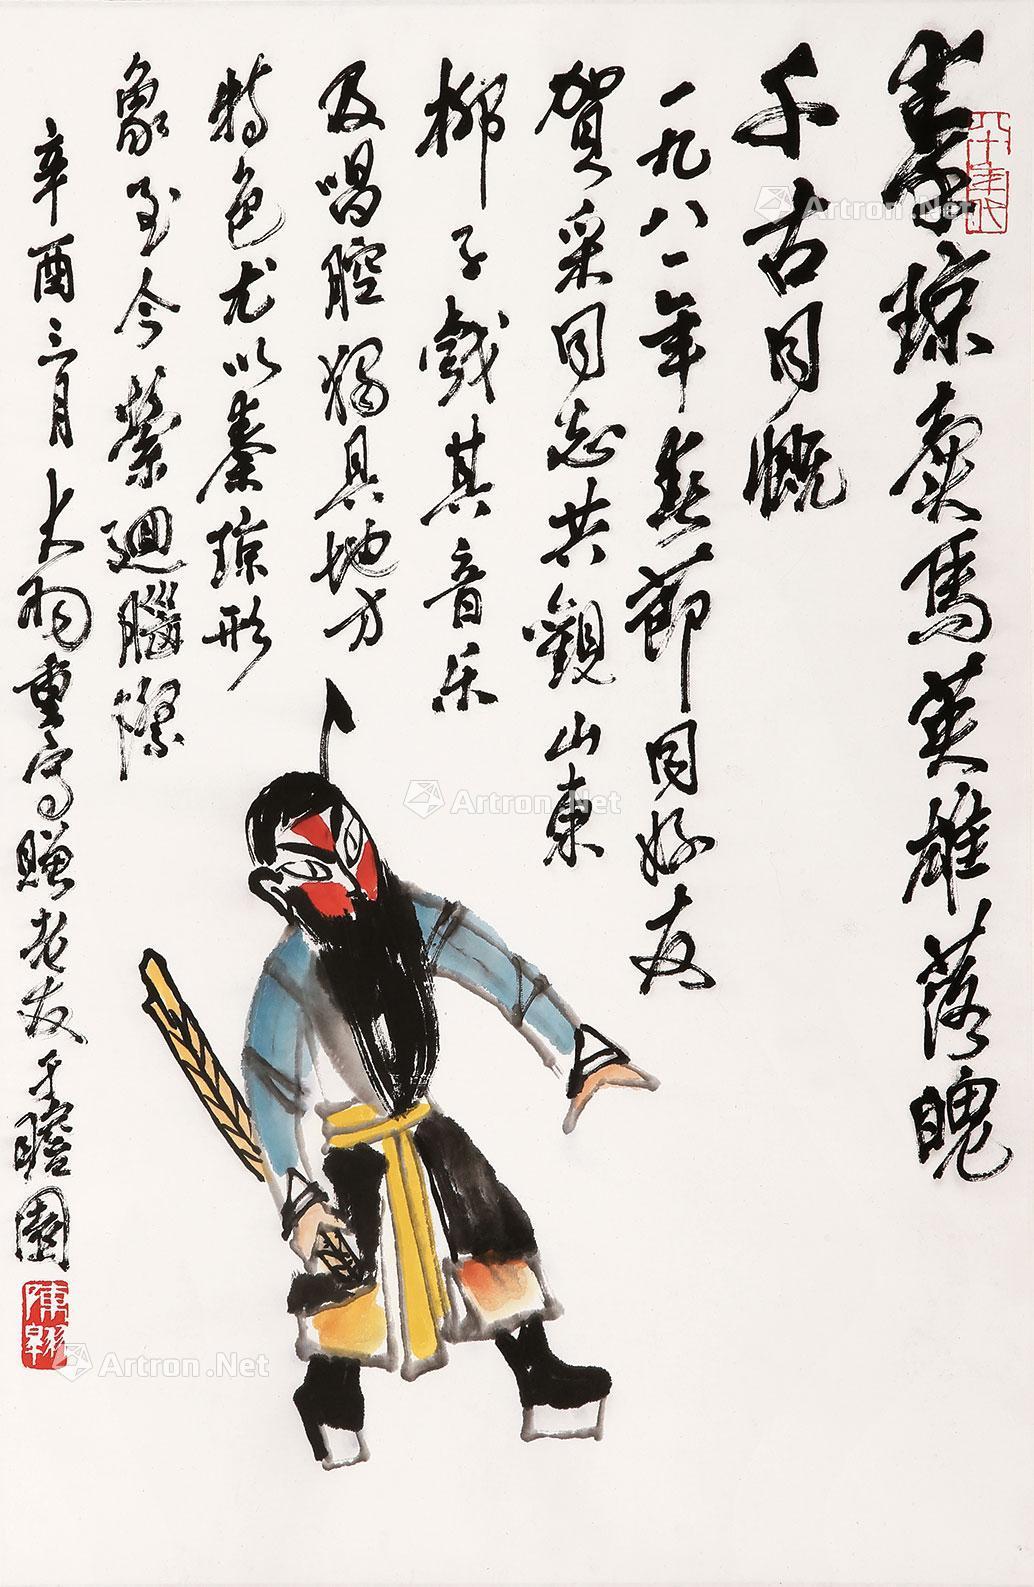 秦琼賣馬英雄落魄
千古同慨
一九八一年春節同好友
賀采同志共觀山東
柳子戲其音乐
及唱腔獨具地方
特色尤以秦琼形
象至今縈迴腦際
辛酉三月大羽重寫贈老友王瞻園
八十年代
陳翱
Artron.Net
Artron.Net
Artron.Net